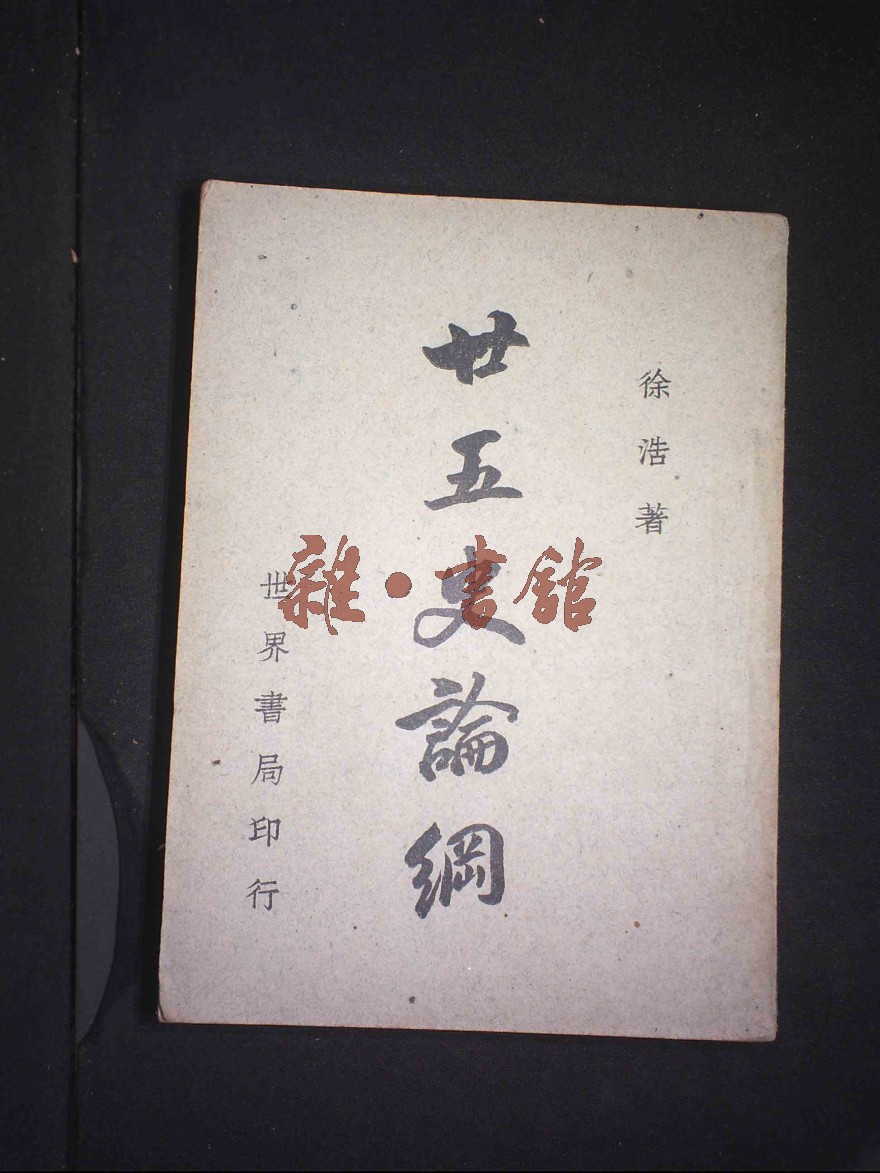 徐浩著
廿五史論綱
世界書局印行
雜·書館